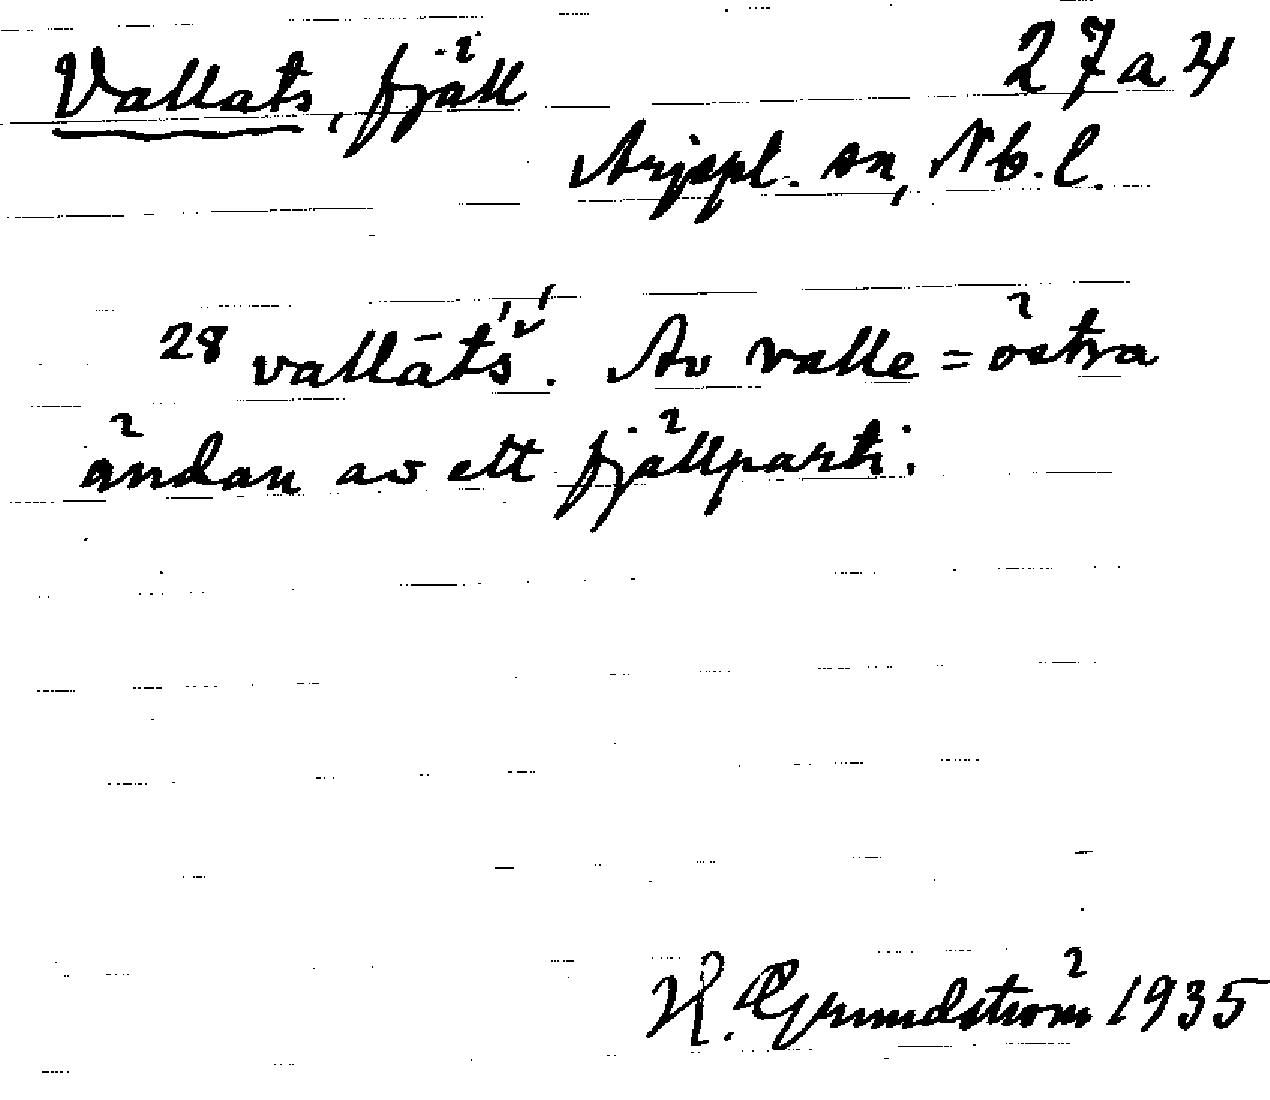 Vallats, fjäll 27a4
Arjepl. sn, Nb. l.
28 vallāt́š́. Av valle = östra
ändan av ett fjällparti.
H. Grundström 1935